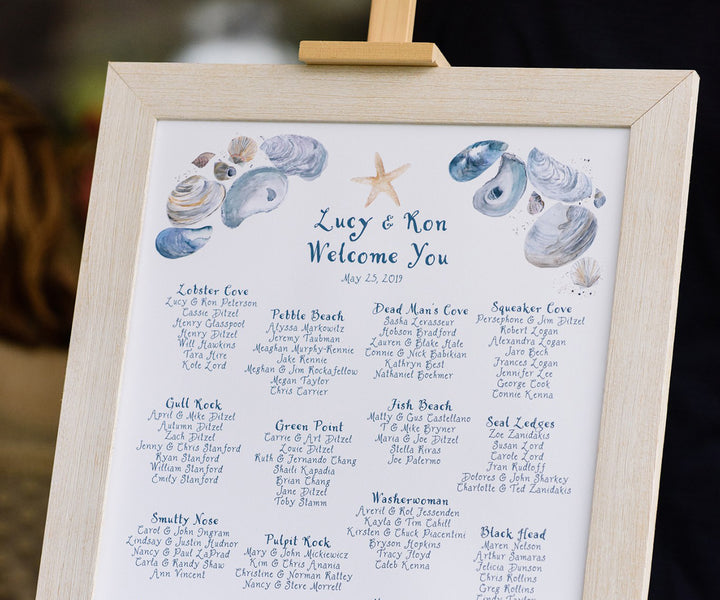 Lucy & Ron
Welcome You
May 25, 2019
Lobster Cove
Lucy & Ron Peterson
Cassie Ditzel
Henry Glasspool
Henry Ditzel
Will Hawkins
Tara Hire
Kole Lord
Pebble Beach
Alyssa Markowitz
Jeremy Taubman
Meaghan Murphy-Rennie
Jake Rennie
Meghan & Jim Rockafellow
Megan Taylor
Chris Carrier
Dead Man's Cove
Sasha Lerasseur
Hobson Bradford
Lauren & Blake Hale
Connie & Nick Babikian
Kathryn Best
Nathaniel Boehmer
Squeaker Cove
Persephone & Jim Ditzel
Robert Logan
Alexandra Logan
Jaro Bech
Frances Logan
Jennifer Lee
George Cook
Connie Kenna
Gull Rock
April & Mike Ditzel
Autumn Ditzel
Zach Ditzel
Jenny & Chris Stanford
Ryan Stanford
William Stanford
Emily Stanford
Green Point
Carrie & Art Ditzel
Louie Ditzel
Ruth & Fernando Chang
Shaili Kapadia
Brian Chang
Jane Ditzel
Toby Stamm
Fish Beach
Matty & Gus Castellano
T & Mike Bryner
Maria & Joe Ditzel
Stella Riras
Joe Palermo
Seal Ledges
Zoe Zanidakis
Susan Lord
Carole Lord
Fran Rudloff
Dolores & John Sharkey
Charlotte & Ted Zanidakis
Smutty Nose
Carol & John Ingram
Lindsay & Justin Hudnor
Nancy & Paul LaPrad
Carla & Randy Shaw
Ann Vincent
Pulpit Rock
Mary & John Mickiewicz
Kim & Chris Anania
Christine & Norman Rattey
Nancy & Steve Morrell
Washerwoman
Averil & Rol Jessenden
Kayla & Tim Cahill
Kirsten & Chuck Piacentini
Bryson Hopkins
Tracy Floyd
Caleb Kenna
Black Head
Maren Nelson
Arthur Samaras
Felicia Dunson
Chris Rollins
Greg Rollins